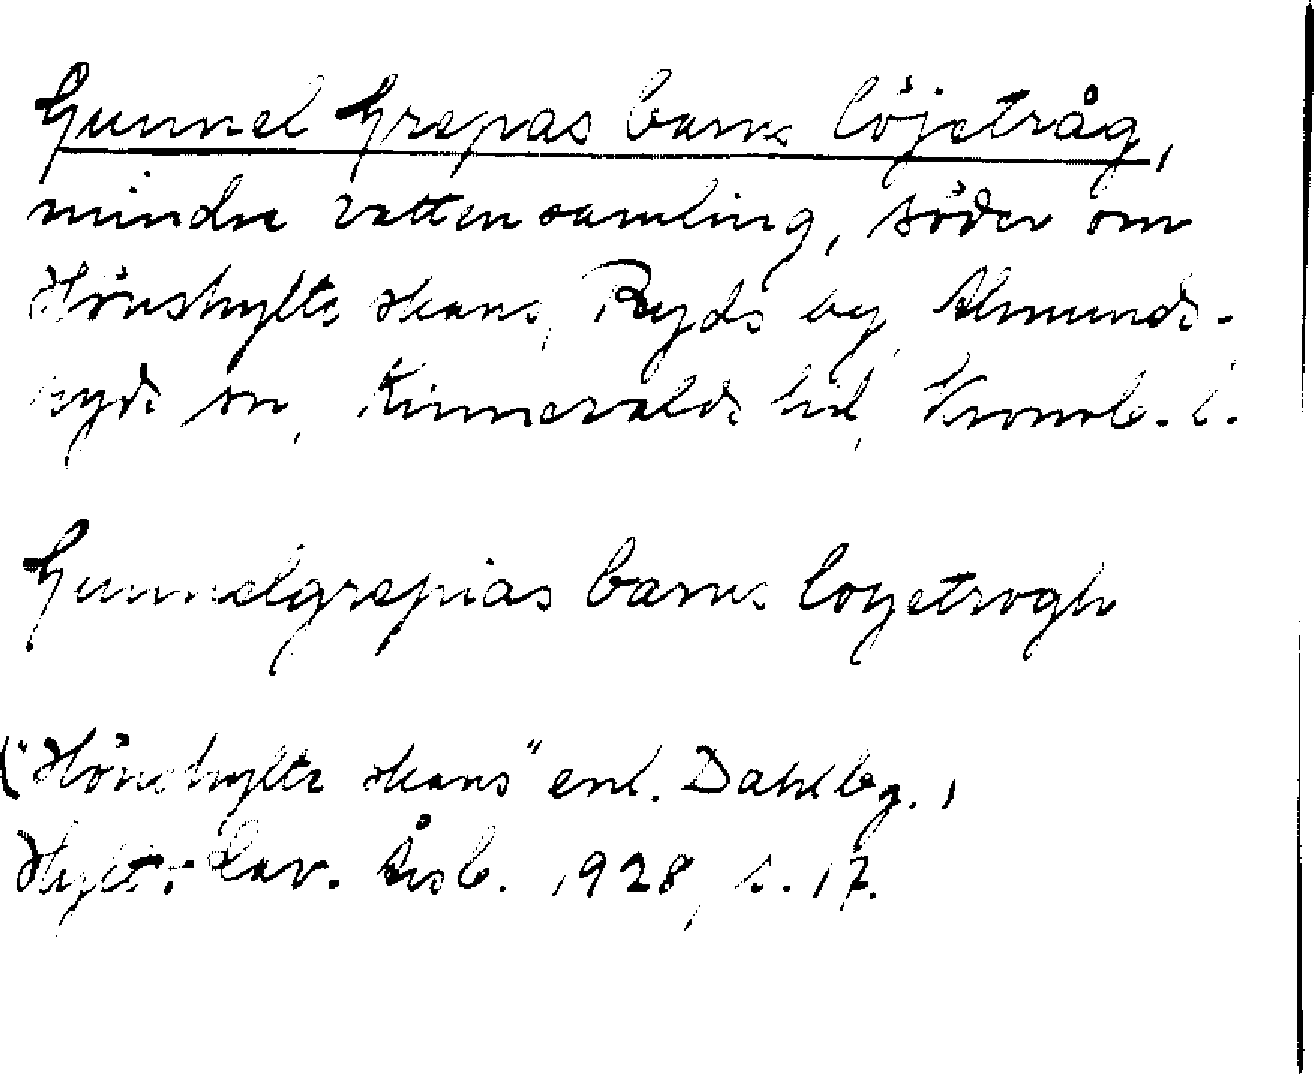 Gunnel Grepas barns löjetråg,
mindre vattensamling, söder om
Hönshylte skans, Ryds by, Almunds-
ryds sn, Kinnevalds hd, Kronob. l.
Gunnelgrepias barns loyetrogh
("Hönshylte skans" enl. Dahlbg.,
Hylt.-Cav. Årsb. 1928, s. 17.